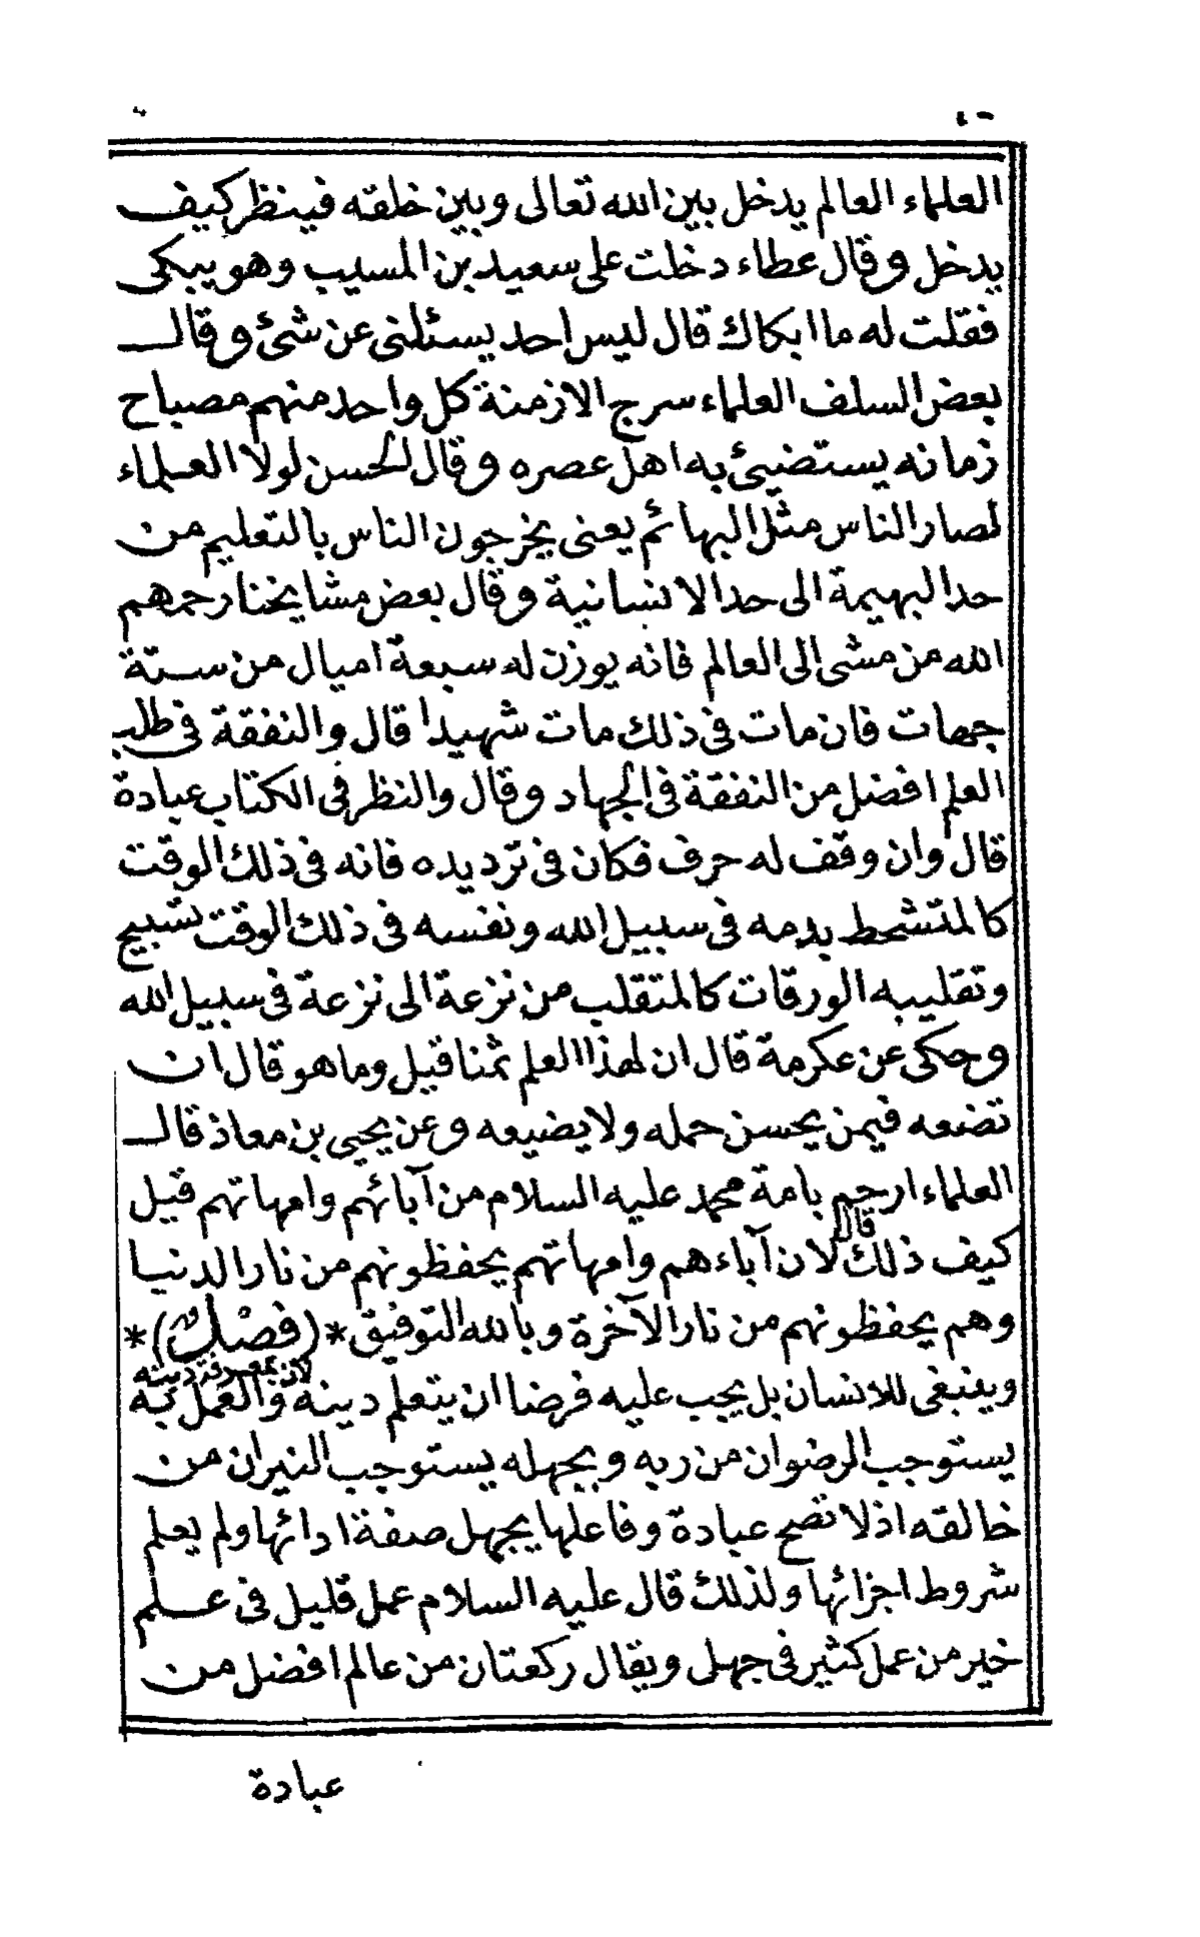 العلماء العالم يدخل بين الله تعالى وبين خلقه فينظر كيف
يدخل وقال عطاء دخلت على سعيد بن المسيب وهو يبكى
فقلت له ما ابكاك قال ليس احد يسئلنى عن شئ وقال
بعض السلف العلماء سرج الازمنة كل واحد منهم مصباح
زمانه يستضيئ به اهل عصره وقال الحسن لولا العلماء
لصار الناس مثل البهائم يعنى يخرجون الناس بالتعليم من
حد البهيمة الى حد الانسانية وقال بعض مشايخنا رحمهم
الله من مشى الى العالم فانه يوزن له سبعة اميال من ستة
جهات فان مات فى ذلك مات شهيدا قال والنفقة فى طلب
العلم افضل من النفقة فى الجهاد وقال والنظر فى الكتاب عبادة
قال وان وقف له حرف فكان فى ترديده فانه فى ذلك الوقت
كالمتشحط بدمه فى سبيل الله ونفسه فى ذلك الوقت تسبيح
وتقليبه الورقات كالمتقلب من نزعة الى نزعة فى سبيل الله
وحكى عن عكرمة قال ان لهذا العلم ثمنا قيل وما هو قال ان
تضعه فيمن يحسن حمله ولا يضيعه وعن يحيى بن معاذ قال
العلماء ارحم بامة محمد عليه السلام من آبائهم وامهاتهم قيل
كيف ذلك قال لان آباءهم وامهاتهم يحفظونهم من نار الدنيا
وهم يحفظونهم من نار الآخرة وبالله التوفيق *(فصل)*
وينبغى للانسان بل يجب عليه فرضا ان يتعلم دينه لان بمعرفة دينه والعمل به
يستوجب الرضوان من ربه وبجهله يستوجب النيران من
خالقه اذ لا تصح عبادة وفاعلها يجهل صفة ادائها ولم يعلم
شروط اجزائها ولذلك قال عليه السلام عمل قليل فى علم
خير من عمل كثير فى جهل ويقال ركعتان من عالم افضل من
عبادة